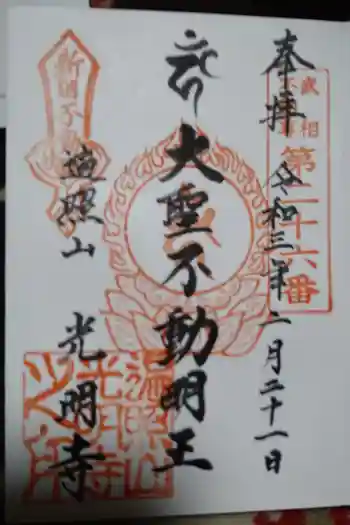 奉拝
令和三年二月二十一日
武相
不動尊
第二十六番
大聖不動明王
新國不動
遍照山
光明寺
遍照山
光明寺
之印